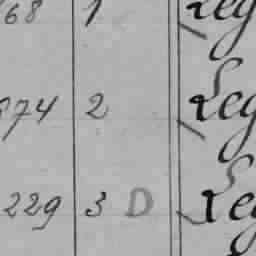 68 1 Leg
874 2 Leg
229 3 D Leg